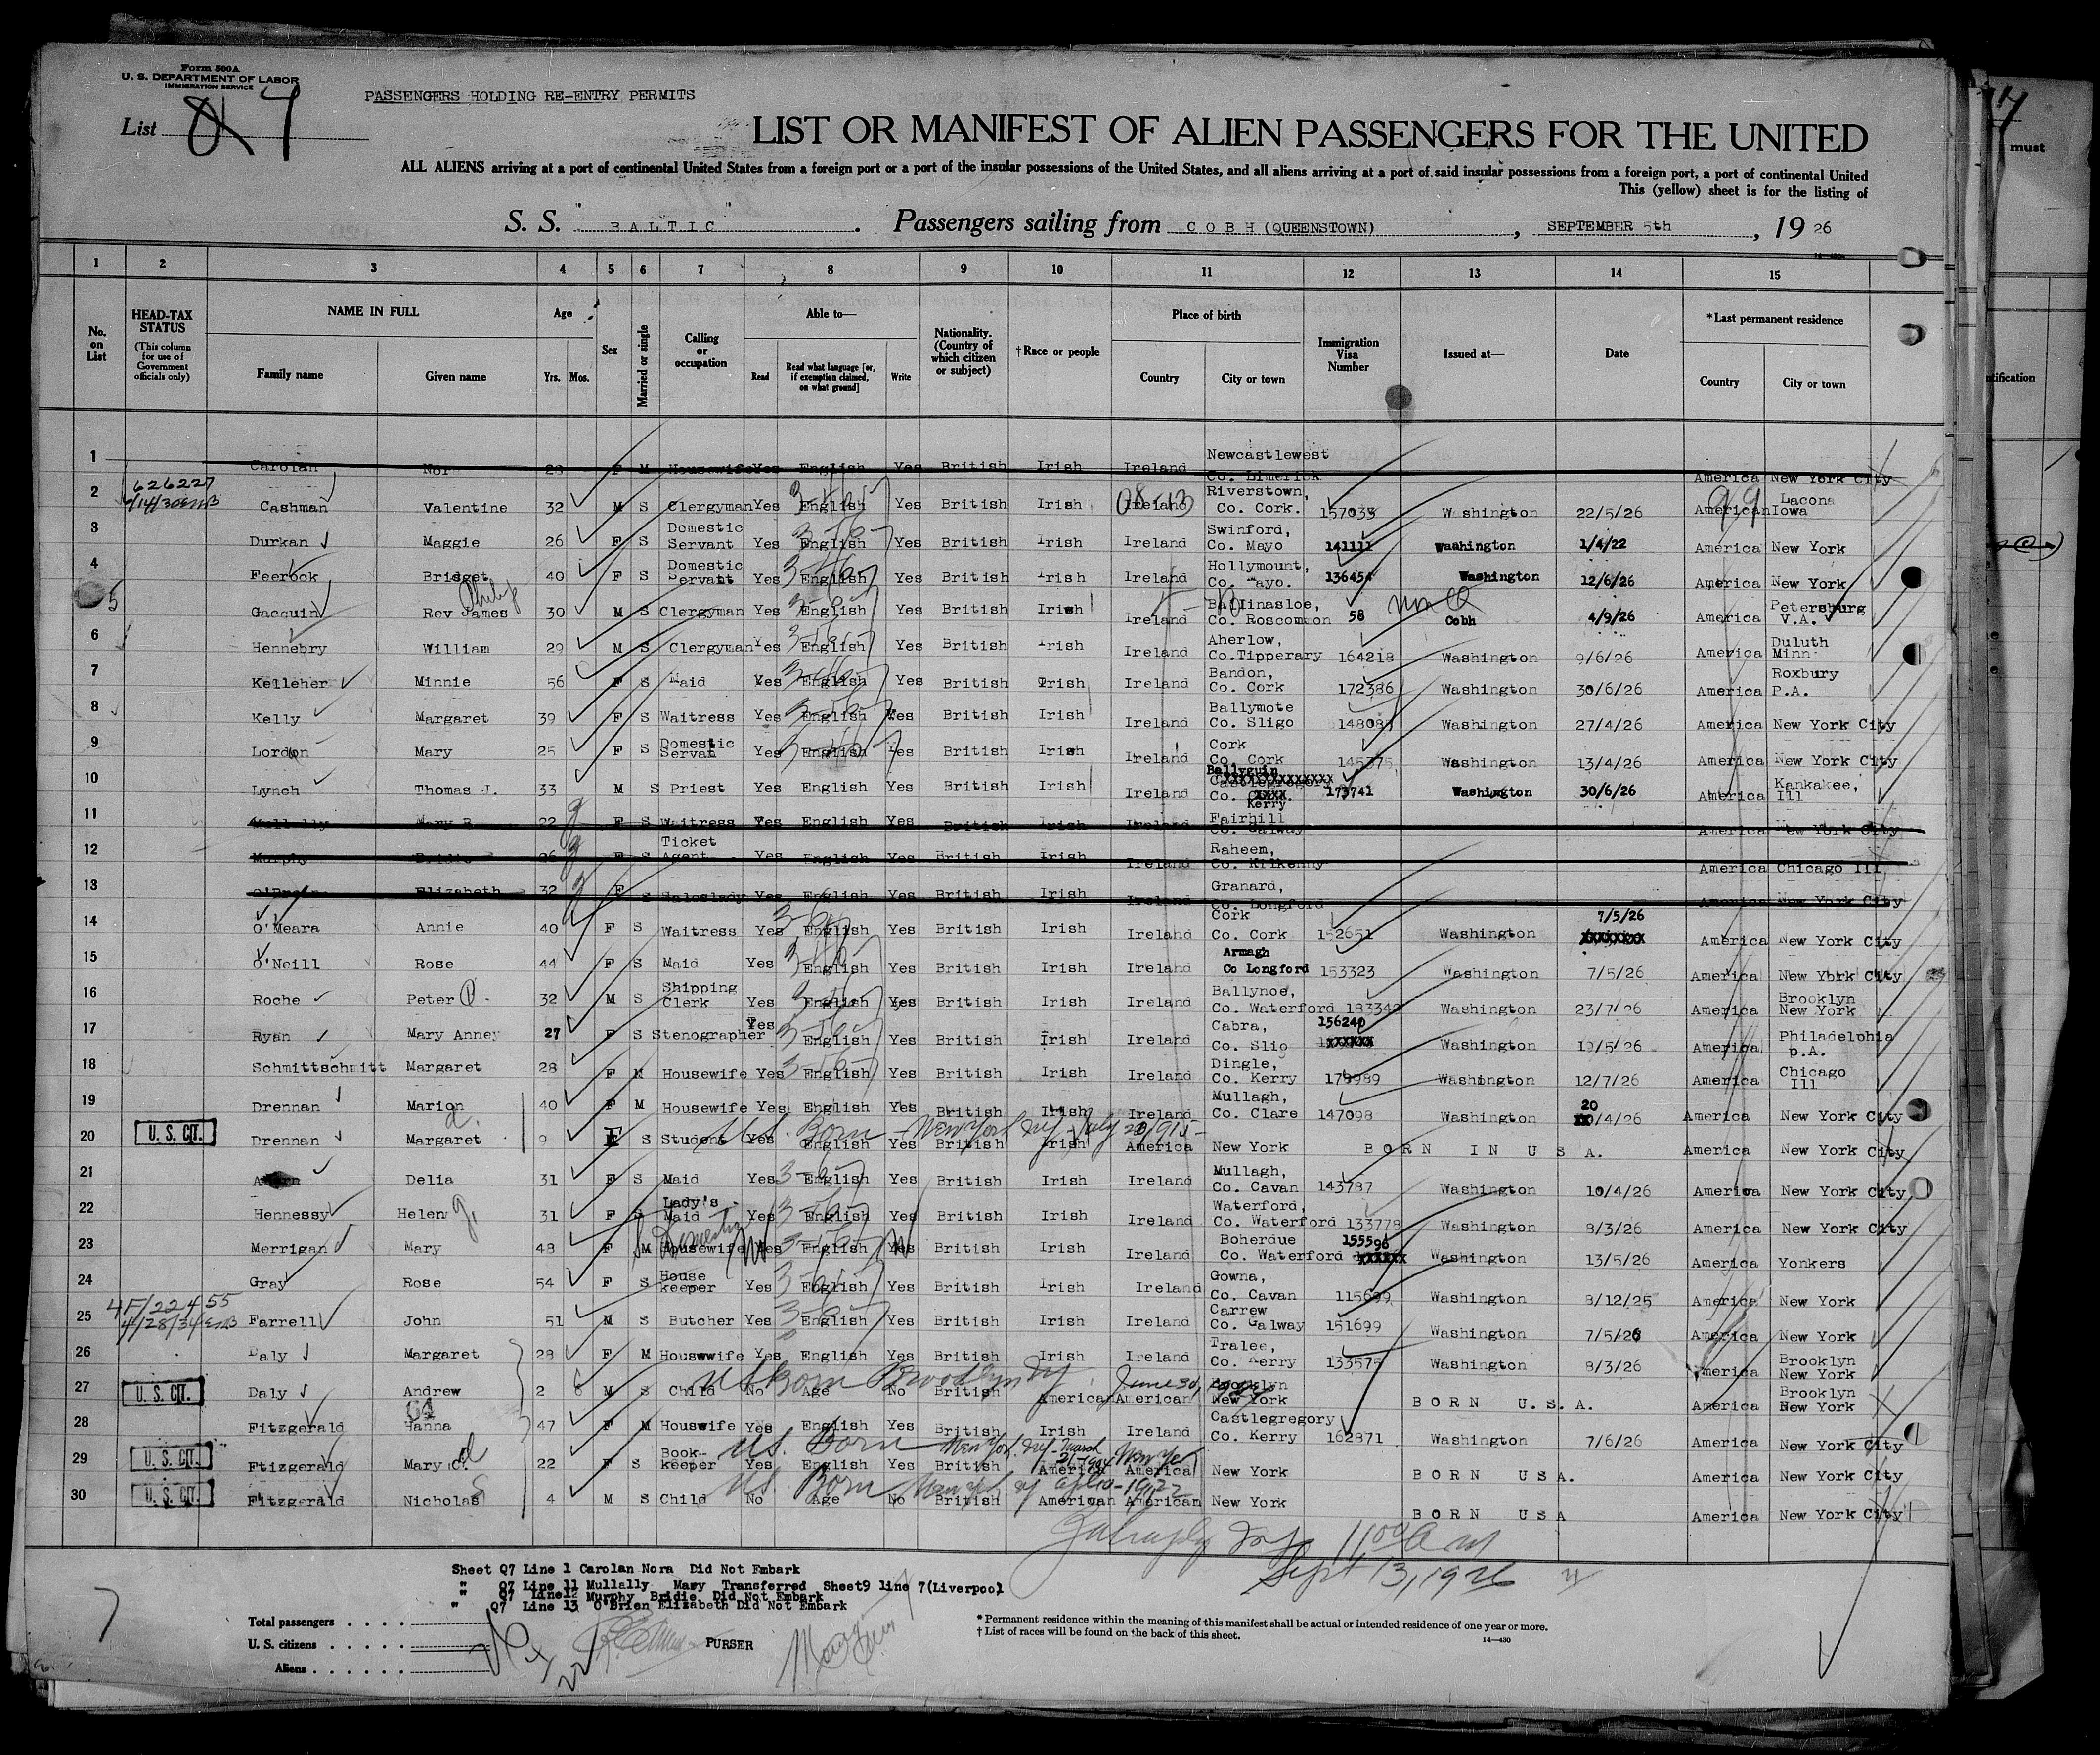 Form 500A
U. S. DEPARTMENT OF LABOR
IMMIGRATION SERVICE
PASSENGERS HOLDING RE-ENTRY PERMITS
List 7
LIST OR MANIFEST OF ALIEN PASSENGERS FOR THE UNITED
ALL ALIENS arriving at a port of continental United States from a foreign port or a port of the insular possessions of the United States, and all aliens arriving at a port of said insular possessions from a foreign port, a port of continental United
This (yellow) sheet is for the listing of
S. S. "BALTIC". Passengers sailing from COBH (QUEENSTOWN), SEPTEMBER 5th, 1926
1 2 3 4 5 6 7 8 9 10 11 12 13 14 15
No. on List
HEAD-TAX STATUS (This column for use of Government officials only)
NAME IN FULL
Family name Given name
Age
Yrs. Mos.
Sex
Married or single
Calling or occupation
Able to—
Read Read what language [or, if exemption claimed, on what ground] Write
Nationality. (Country of which citizen or subject)
†Race or people
Place of birth
Country City or town
Immigration Visa Number
Issued at—
Date
*Last permanent residence
Country City or town
1 Carolan Nor 28 F M Housewife Yes English Yes British Irish Ireland Newcastlewest Co. Limerick America New York City
2 626227 Cashman Valentine 32 M S Clergyman Yes English Yes British Irish Ireland Riverstown, Co. Cork. 157035 Washington 22/5/26 American Lacona Iowa
3 Durkan Maggie 26 F S Domestic Servant Yes English Yes British Irish Ireland Swinford, Co. Mayo 141111 Washington 1/4/22 America New York
4 Feerock Bridget 40 F S Domestic Servant Yes English Yes British Irish Ireland Hollymount, Co. Mayo. 136454 Washington 12/6/26 America New York
5 Gacquin Rev James Philip 30 M S Clergyman Yes English Yes British Irish Ireland Ballinasloe, Co. Roscommon 58 Cobh 4/9/26 America Petersburg V.A.
6 Hennebry William 29 M S Clergyman Yes English Yes British Irish Ireland Aherlow, Co.Tipperary 164218 Washington 9/6/26 America Duluth Minn
7 Kelleher Minnie 56 F S Maid Yes English Yes British Irish Ireland Bandon, Co. Cork 172386 Washington 30/6/26 America Roxbury P.A.
8 Kelly Margaret 39 F S Waitress Yes English Yes British Irish Ireland Ballymote Co. Sligo 14808 Washington 27/4/26 America New York City
9 Lordon Mary 25 F S Domestic Servan Yes English Yes British Irish Ireland Cork Co. Cork 145375 Washington 13/4/26 America New York City
10 Lynch Thomas J. 33 M S Priest Yes English Yes British Irish Ireland Ballyguin Co. Kerry 173741 Washington 30/6/26 America Kankakee, Ill
11 Mullally Mary B 22 F S Waitress Yes English Yes British Irish Ireland Fairhill Co. Galway America New York City
12 Murphy Bridie 26 F S Ticket Agent Yes English Yes British Irish Ireland Raheem, Co. Kilkenny America Chicago Ill
13 O'Brein Elizabeth 32 F S Saleslady Yes English Yes British Irish Ireland Granard, Co. Longford America New York City
14 O'Meara Annie 40 F S Waitress Yes English Yes British Irish Ireland Cork Co. Cork 152651 Washington 7/5/26 America New York City
15 O'Neill Rose 44 F S Maid Yes English Yes British Irish Ireland Armagh Co Longford 153323 Washington 7/5/26 America New York City
16 Roche Peter 32 M S Shipping Clerk Yes English Yes British Irish Ireland Ballynoe, Co. Waterford 183342 Washington 23/7/26 America Brooklyn New York
17 Ryan Mary Anney 27 F S Stenographer Yes English Yes British Irish Ireland Cabra, Co. Slio 156240 Washington 19/5/26 America Philadelphia p.A.
18 Schmittschmitt Margaret 28 F M Housewife Yes English Yes British Irish Ireland Dingle, Co. Kerry 179989 Washington 12/7/26 America Chicago Ill
19 Drennan Marion 40 F M Housewife Yes English Yes British Irish Ireland Mullagh, Co. Clare 147098 Washington 20/4/26 America New York City
U.S. Born - New York
20 U. S. CIT. Drennan Margaret 9 F S Student Yes English Yes British Irish America New York BORN IN U S A. America New York City
21 Delia 31 F S Maid Yes English Yes British Irish Ireland Mullagh, Co. Cavan 143787 Washington 10/4/26 America New York City
22 Hennessy Helen 31 F S Lady's Maid Yes English Yes British Irish Ireland Waterford, Co. Waterford 133778 Washington 8/3/26 America New York City
23 Merrigan Mary 48 F M Housewife Domestic Yes English Yes British Irish Ireland Boherdue Co. Waterford 155596 Washington 13/5/26 America Yonkers
24 Gray Rose 54 F S House keeper Yes English Yes British Irish Ireland Gowna, Co. Cavan 115699 Washington 8/12/25 America New York
25 4F/22455 4/28/34 Farrell John 51 M S Butcher Yes English Yes British Irish Ireland Carrew Co. Galway 151699 Washington 7/5/26 America New York
26 Daly Margaret 28 F M Housewife Yes English Yes British Irish Ireland Tralee, Co. Kerry 133575 Washington 8/3/26 America Brooklyn New York
US Born Brooklyn NY June 30,
27 U. S. CIT. Daly Andrew 2 6 M S Child No Age No British American American Brooklyn New York BORN U.S.A. America Brooklyn New York
28 Fitzgerald Hanna 47 F M Houswife Yes English Yes British Irish Ireland Castlegregory Co. Kerry 162871 Washington 7/6/26 America New York City
U.S. Born New York
29 U. S. CIT. Ftizgerald Mary C. 22 F S Book-keeper Yes English Yes British American America New York BORN USA. America New York City
U.S. Born New York
30 U. S. CIT. Fitzgerald Nicholas 4 M S Child No Age No British American American New York BORN USA America New York City
11 00 A M
Sept 13, 1926
Sheet Q7 Line 1 Carolan Nora Did Not Embark
" Q7 Line 11 Mullally Mary Transferred Sheet9 line 7(Liverpool
" Q7 Line12 Murphy Bridie Did Not Embark
" Q7 Line 13 O'Brien Elizabeth Did Not Embark
Total passengers
U. S. citizens
Aliens
PURSER
* Permanent residence within the meaning of this manifest shall be actual or intended residence of one year or more.
† List of races will be found on the back of this sheet.
14—430
must